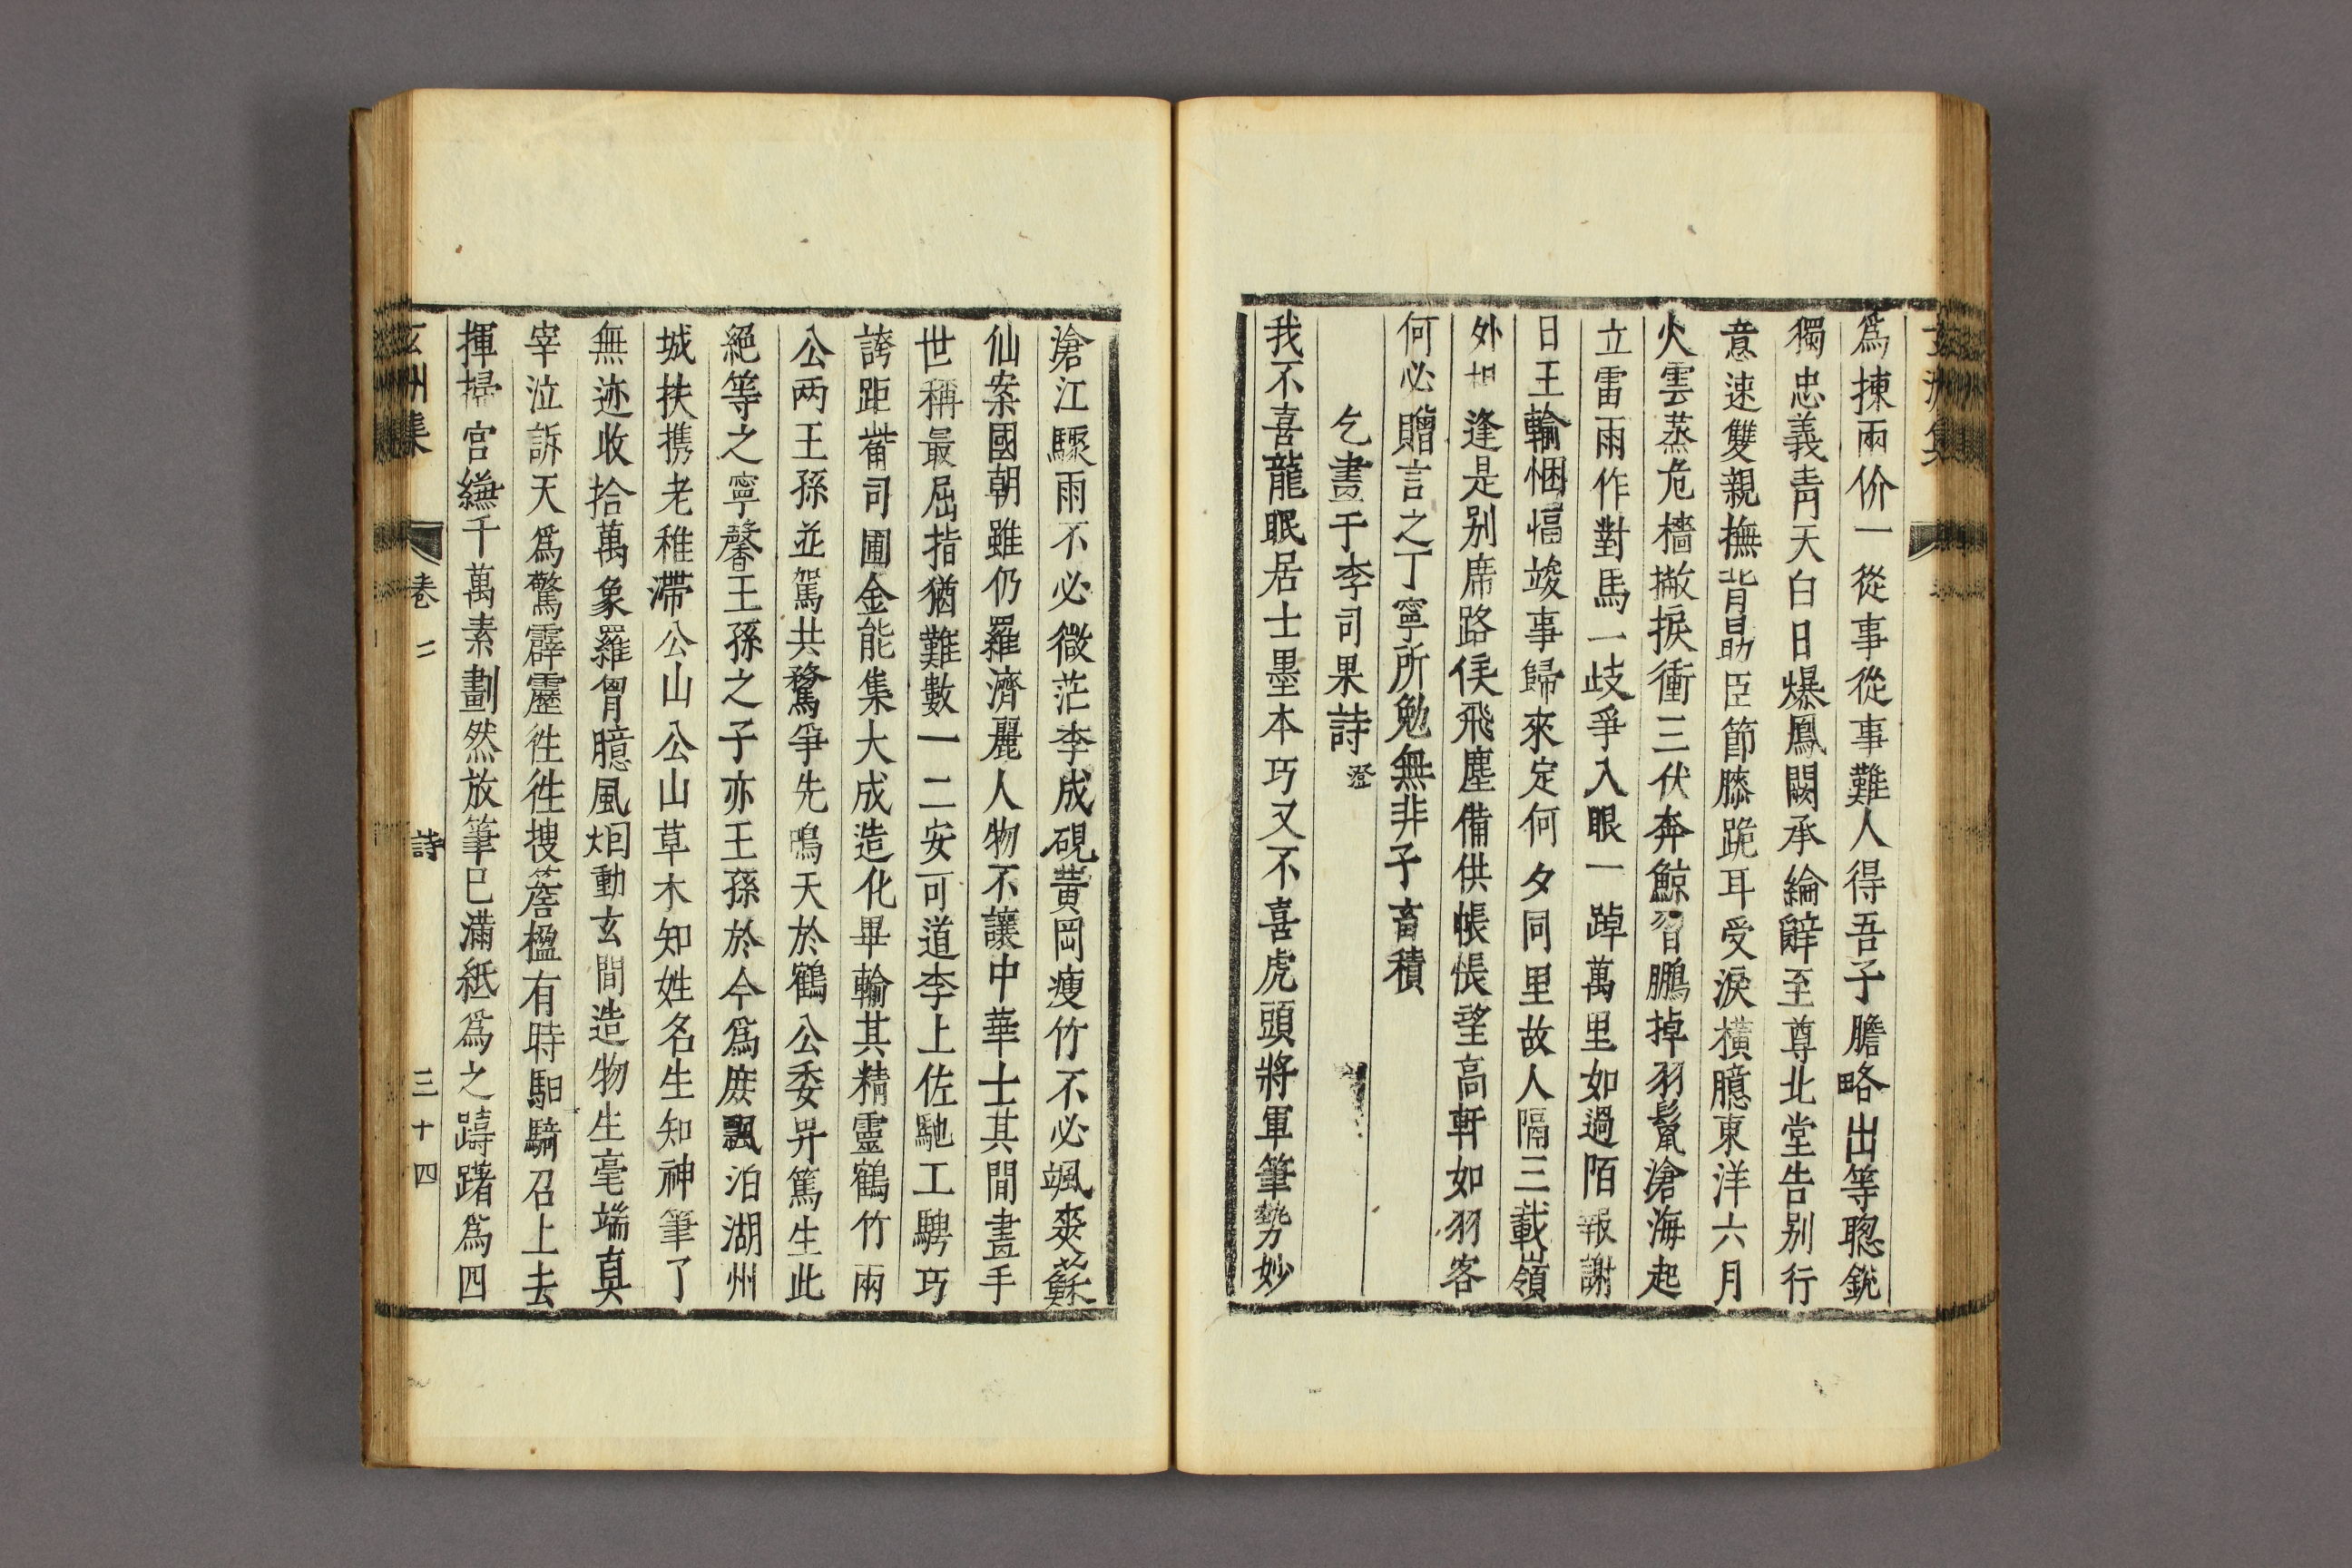 爲揀兩价一從事從事難人得吾子膽略出等聰銳
獨忠義靑天白日爆鳳闕承綸辭至尊北堂告別行
意速雙親撫背勗臣節膝跪耳受淚橫臆東洋六月
火雲蒸危檣撇捩衝三伏奔鯨習鵬掉羽鬣滄海起
立雷雨作對馬一歧爭入眼一踔萬里如過陌報謝
日王輸悃愊竣事歸來定何夕同里故人隔三載嶺
外相逢是別席路俟飛塵備供帳悵望高軒如羽客
何必贈言之丁寧所勉無非子畜積
乞畫于李司果詩澄
我不喜龍眠居士墨本巧又不喜虎頭將軍筆勢妙
滄江驟雨不必微茫李成硯黃岡瘦竹不必颯爽蘇
仙案國朝雖仍羅濟麗人物不讓中華士其間畫手
世稱最屈指猶難數一二安可道李上佐馳工騁巧
誇距薺司圃金能集大成造化畢輸其精靈鶴竹兩
公兩王孫並駕共騖爭先鳴天於鶴公委畀篤生此
絕等之寧馨王孫之子亦王孫於今爲庶飄泊湖州
城扶携老稚滯公山公山草木知姓名生知神筆了
無迹收拾萬象羅胷臆風烟動玄間造物生毫端眞
宰泣訴天爲驚霹靂徃徃捜薝楹有時馹騎召上去
揮掃宮縑千萬素劃然放筆已滿紙爲之躊躇爲四
玄州集 卷二 詩 三十四